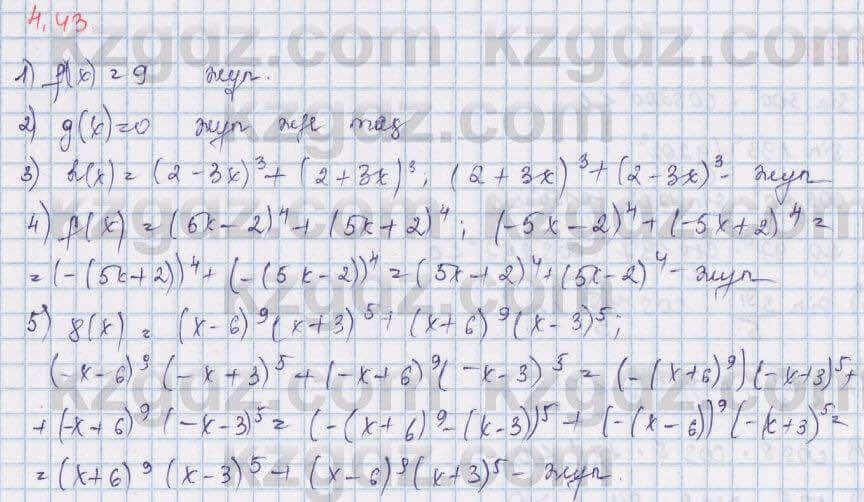 4.43
1) f(x) = 9 жұп.
2) g(x)=0 жұп әрі тақ
3) h(x) = (2-3x)^3 + (2+3x)^3; (2+3x)^3 + (2-3x)^3 - жұп
4) f(x) = (5x-2)^4 + (5x+2)^4; (-5x-2)^4 + (-5x+2)^4 =
= (-(5x+2))^4 + (-(5x-2))^4 = (5x+2)^4 + (5x-2)^4 - жұп
5) g(x) = (x-6)^9 (x+3)^5 + (x+6)^9 (x-3)^5;
(-x-6)^9 (-x+3)^5 + (-x+6)^9 (-x-3)^5 = (-(x+6)^9) (-x+3)^5 +
+ (-x+6)^9 (-x-3)^5 = (-(x+6)^9 -(x-3))^5 + (-(x-6))^9 (-(x+3)^5 =
= (x+6)^9 (x-3)^5 + (x-6)^9 (x+3)^5 - жұп.
kzgdz.com